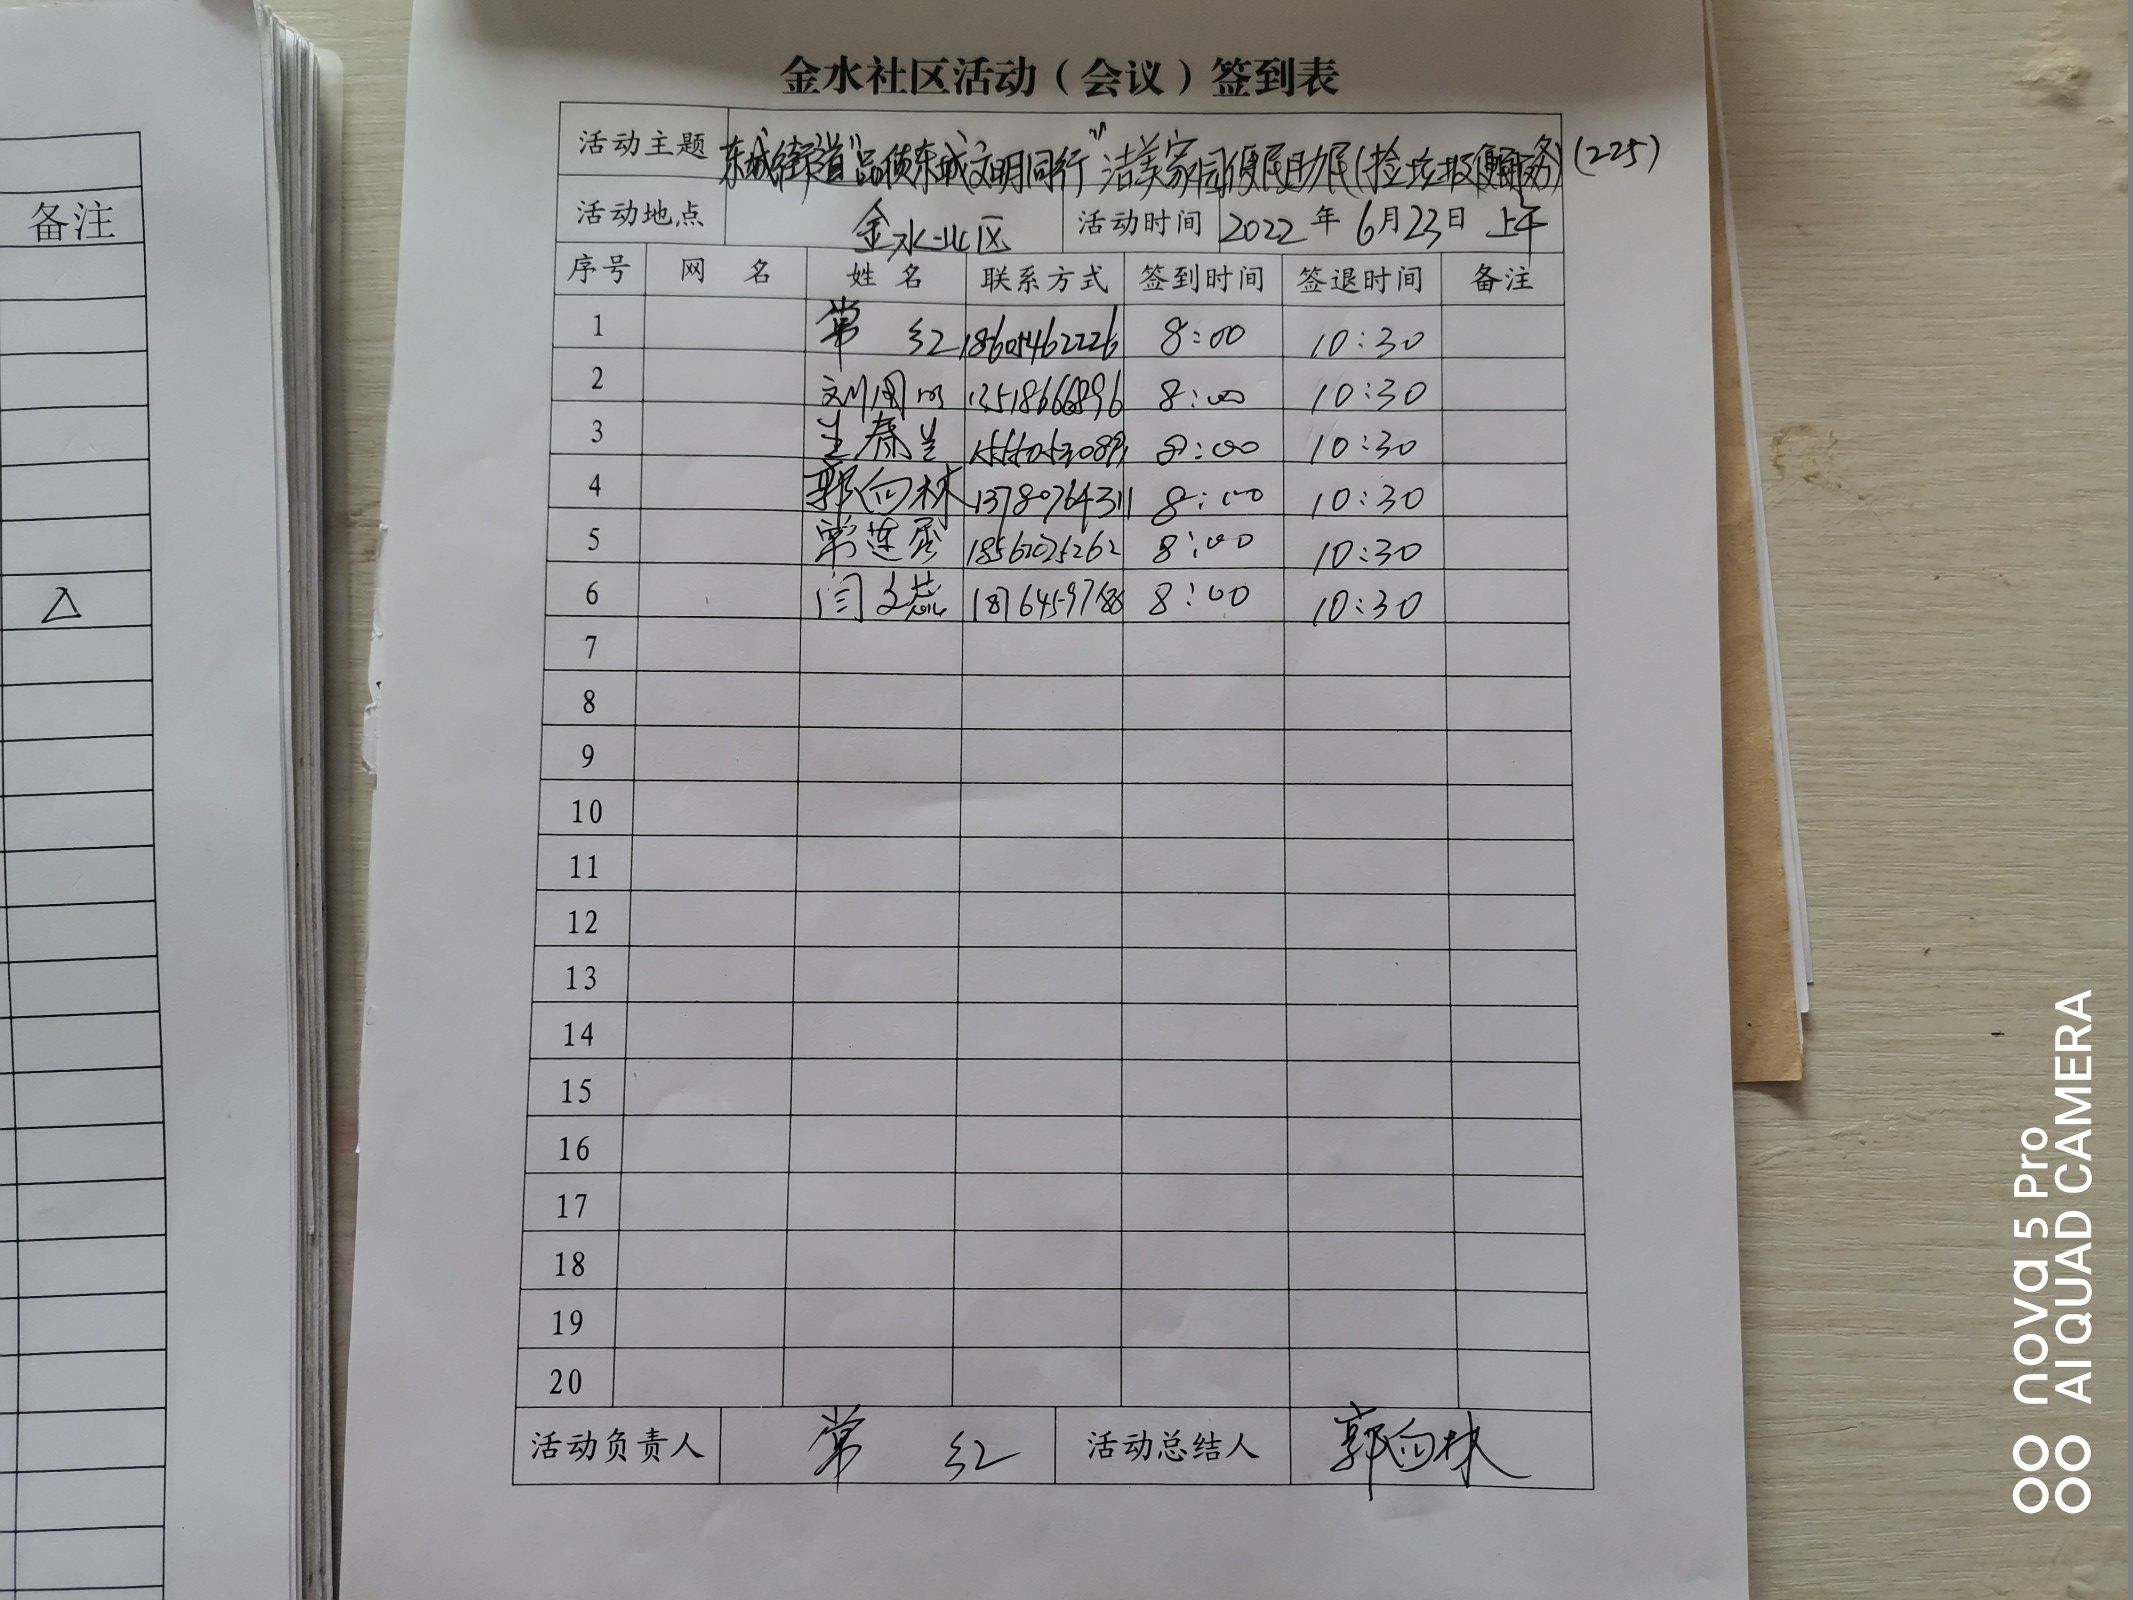 金水社区活动（会议）签到表
活动主题 东城街道"品质东城文明同行"洁美家园便民助民(捡垃圾便民服务)(225)
活动地点 金水北区 活动时间 2022年6月23日 上午
序号 网 名 姓 名 联系方式 签到时间 签退时间 备注
1 常 红 18601462226 8:00 10:30
2 刘国明 13518666896 8:00 10:30
3 王春兰 8:00 10:30
4 郭向林 13780764311 8:00 10:30
5 常莲秀 18562025262 8:00 10:30
6 闫文燕 8:00 10:30
7
8
9
10
11
12
13
14
15
16
17
18
19
20
活动负责人 常 红 活动总结人 郭向林
备注
△
nova 5 Pro
AI QUAD CAMERA